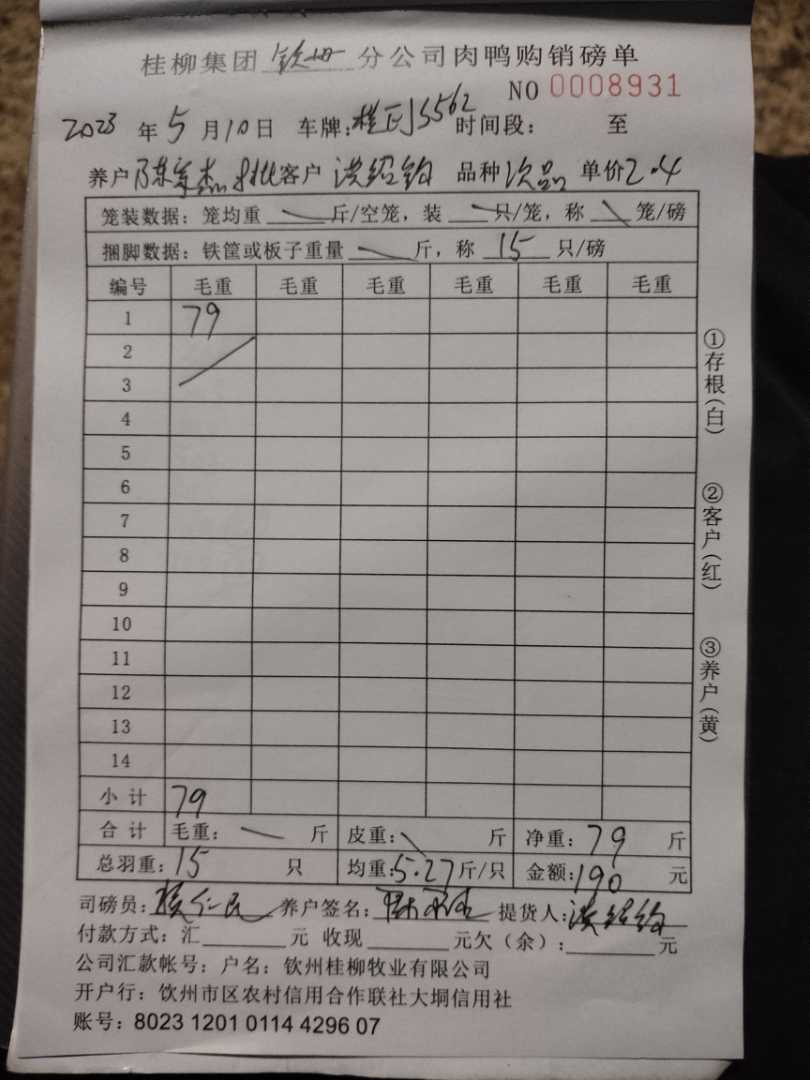 桂柳集团 钦州 分公司肉鸭购销磅单
NO 0008931
2023 年 5 月 10 日 车牌: 5562 时间段: 至
养户 陈 杰 8批 客户 洪绍钧 品种 次品 单价 2.4
笼装数据: 笼均重 斤/空笼, 装 只/笼, 称 笼/磅
捆脚数据: 铁筐或板子重量 斤, 称 15 只/磅
编号 毛重 毛重 毛重 毛重 毛重 毛重
1 79
2
3
4
5
6
7
8
9
10
11
12
13
14
小 计 79
合 计 毛重: 斤 皮重: 斤 净重: 79 斤
总羽重: 15 只 均重: 5.27 斤/只 金额: 190 元
司磅员: 仁民 养户签名: 提货人: 洪绍钧
付款方式: 汇 元 收现 元欠（余）: 元
公司汇款帐号: 户名: 钦州桂柳牧业有限公司
开户行: 饮州市区农村信用合作联社大垌信用社
账号: 8023 1201 0114 4296 07
①存根(白)
②客户(红)
③养户(黄)